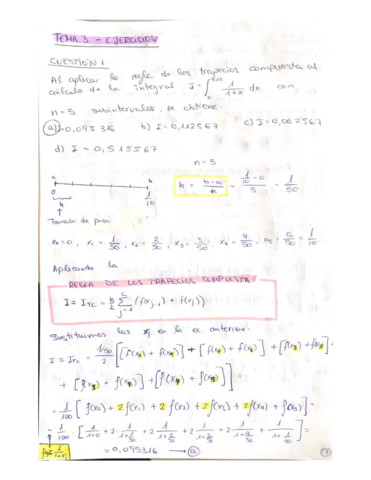 TEMA 3 - EJERCICIOS
CUESTIÓN 1
Al aplicar la regla de los trapecios compuesta al
cálculo de la integral I = ∫₀^(1/10) 1/(1+x) dx con
n = 5 subintervalos, se obtiene:
a) I=0,095316 b) I=0,112567 c) I=0,002567
d) I = 0,515567
n = 5
h = (b-a)/n = (1/10 - 0)/5 = 1/50
a b
0 1/10
h
Tamaño de paso
x₀=0, x₁ = 1/50, x₂ = 2/50, x₃ = 3/50, x₄ = 4/50, x₅ = 5/50 = 1/10
Aplicando la
REGLA DE LOS TRAPECIOS COMPUESTA
I ≈ I_TC = h/2 Σ (f(x_{j-1}) + f(x_j))
j=1
Sustituimos los xj en la ec. anterior:
I ≈ I_TC = (1/50)/2 [[f(x₀) + f(x₁)] + [f(x₁) + f(x₂)] + [f(x₂) + f(x₃)]
+ [f(x₃) + f(x₄)] + [f(x₄) + f(x₅)]] =
= 1/100 [f(x₀) + 2f(x₁) + 2f(x₂) + 2f(x₃) + 2f(x₄) + f(x₅)] =
= 1/100 · [1/(1+0) + 2·1/(1+1/50) + 2 1/(1+2/50) + 2 1/(1+3/50) + 2 1/(1+4/50) + 1/(1+1/10)] =
= 0,095316 → a